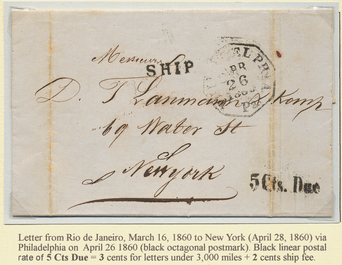 Messieurs
SHIP
PHILADELPHIA
APR
26
1860
Pa
D. T. Lanman & Kemp
69 Water St
Newyork
5 Cts. Due
Letter from Rio de Janeiro, March 16, 1860 to New York (April 28, 1860) via
Philadelphia on April 26 1860 (black octagonal postmark). Black linear postal
rate of 5 Cts Due = 3 cents for letters under 3,000 miles + 2 cents ship fee.